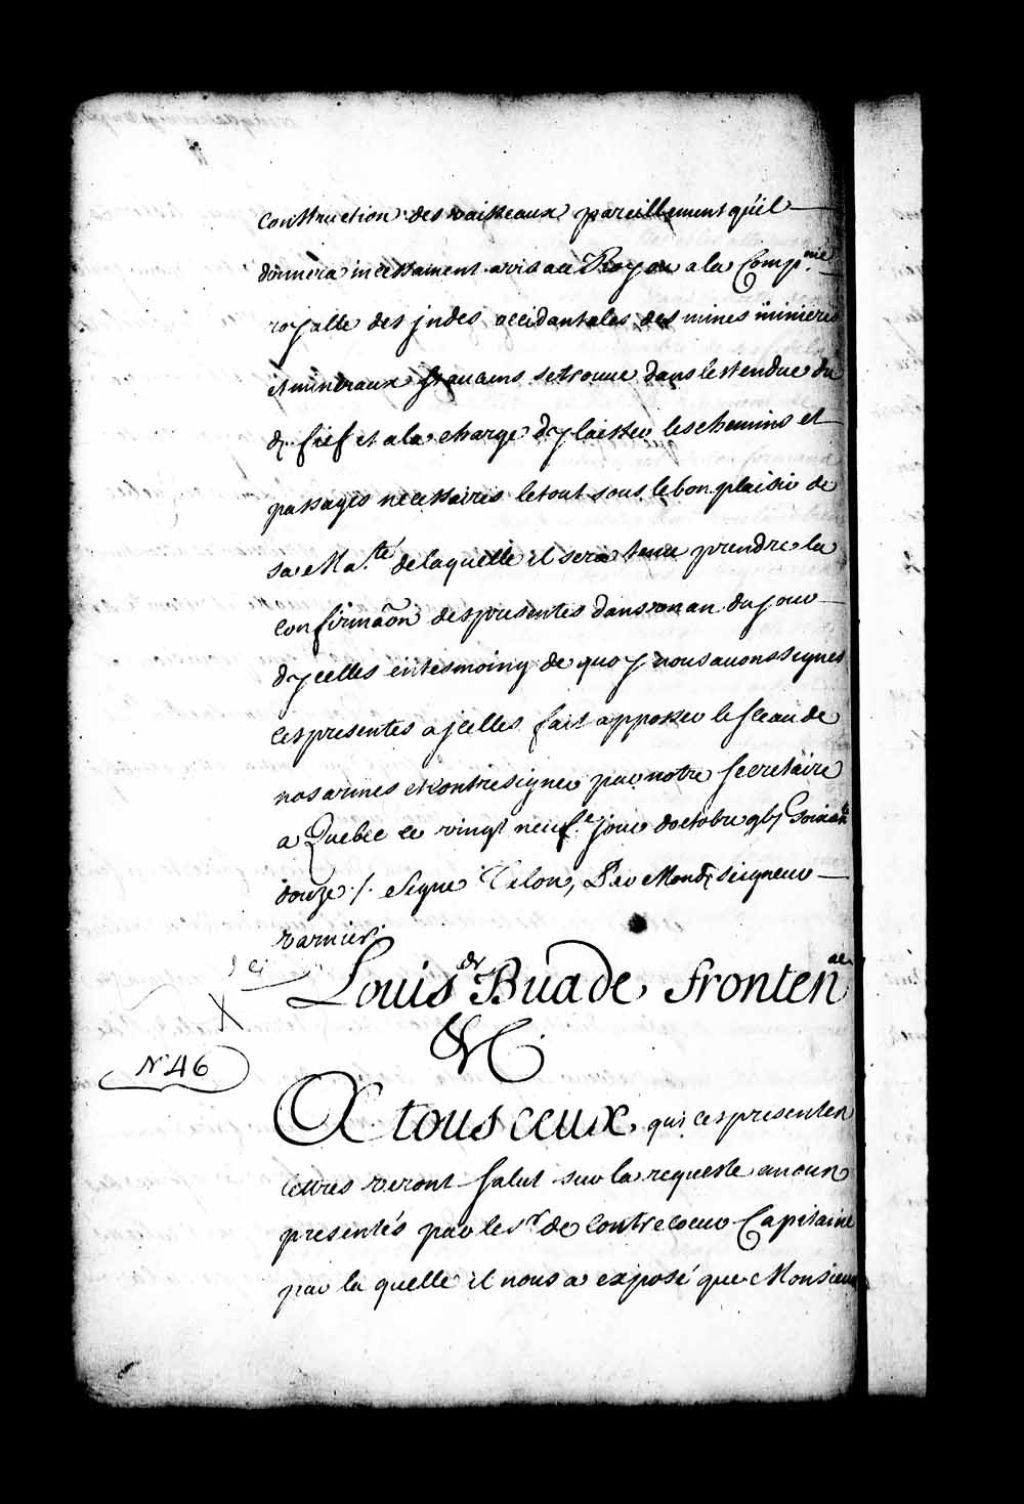 construction des vaisseaux pareillement qu'il
donnera incessament avis au Roy ou a la Comp.nie
royalle des jndes occidantales des mines minieres
et mineraux sy aucuns se trouve dans lestendue du
d. fief et a la charge dy laisser les chemins et
passages necessaires le tout sous le bon plaisir de
sa Ma.té de laquelle il sera tenu prendre la
confirmãon des presentes dans un an du jour
dycelles en tesmoing de quoy nous avons signes
ces presentes a jcelles fait apposer le sceau de
nos armes et contresigner par notre secretaire
a Quebec ce vingt neuf.e jour doctobre gbj Soixante
douze ./. Signe Talon, Par Mond. seigneur
varnier.
Louis de Buade, fronten ac
&c.
N° 46
A tous ceux, qui ces presenten
lettres verront salut sur la requeste a nous
presentés par le s.r de Contrecoeur Capitaine
par la quelle il nous a exposé que Monsieur